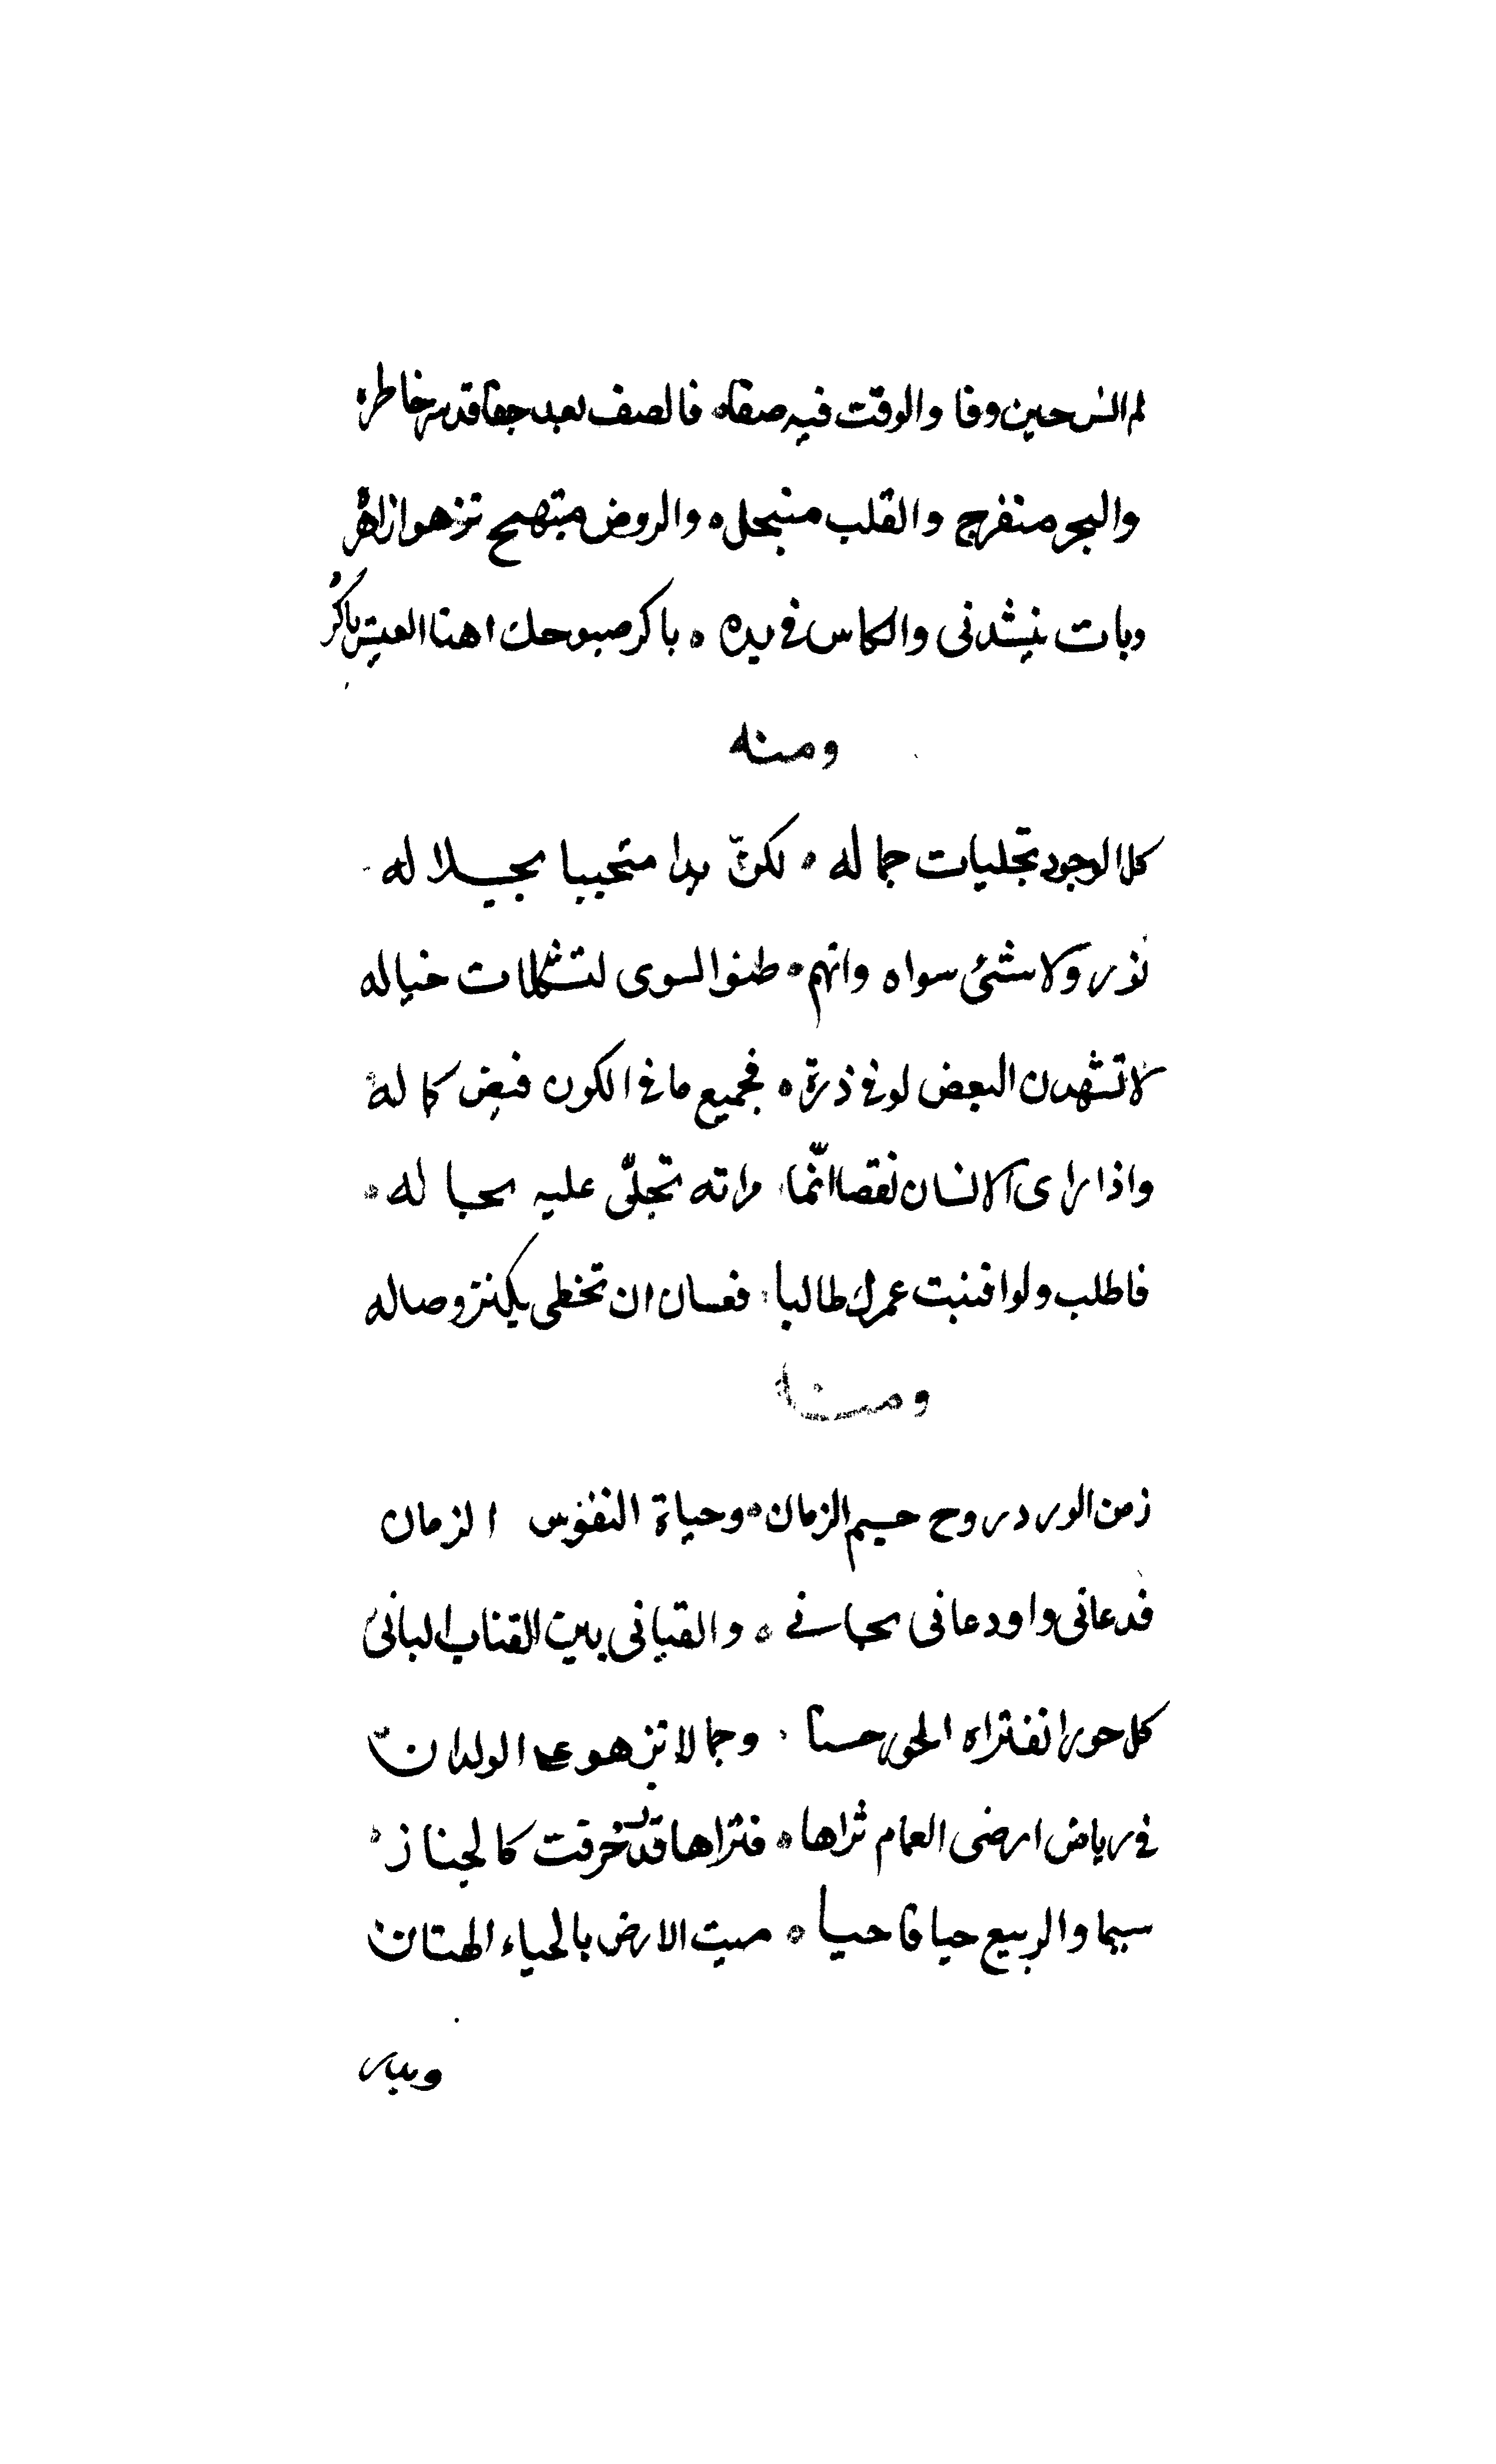 لم انس حين وفا والوقت فيه صفاه فالصف بعد جفا قد سر خاطره
والبحر منفرج والقلب منبجل ه والروض مبتهج تزهو ازاهره
وبات ينشدنى والكاس فى يده ه باكر صبوحك اهنا العيش باكره
ومنه
كل الوجود تجليات جماله ه لكنّ بدا متحيبا بجلاله
نور ولا شئ سواه وانهم ه ظنوا السوى لتشكلات خياله
لا تشهدن البعض لو فى ذرة ه فجميع ما فى الكون فيض كماله
واذا راى الانسان نقصا انّما مراته تجلّى عليه بحاله
فاطلب ولو افنيت عمرك طالبا فعسان ان تحظى بكنز وصاله
ومنه
زمن الورد روح جسم الزمان ه وحياة النفوس الزمان
فدعانى واودعانى بحانى ه والقيانى بين القنانى البانى
كل حورا نفتراه الحور حسنا وجمالا تزهو على الولدان
فى رياض ارضى الغمام ثراها ه فتراها قد زخرفت كالجنان
سيما والربيع حيا فاحيا ه ميت الارض بالحياء الهتان